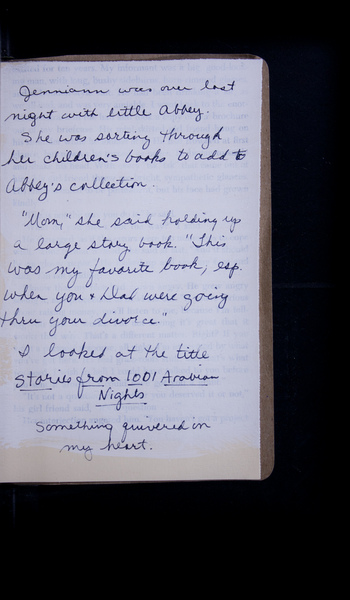 Jenniann was over last
night with little Abbey.
She was sorting through
her children's books to add to
Abbey's collection.
"Mom," she said holding up
a large story book. "This
was my favorite book, esp.
when you & Dad were going
thru your divorce."
I looked at the title
Stories from 1001 Arabian
Nights
Something quivered in
my heart.